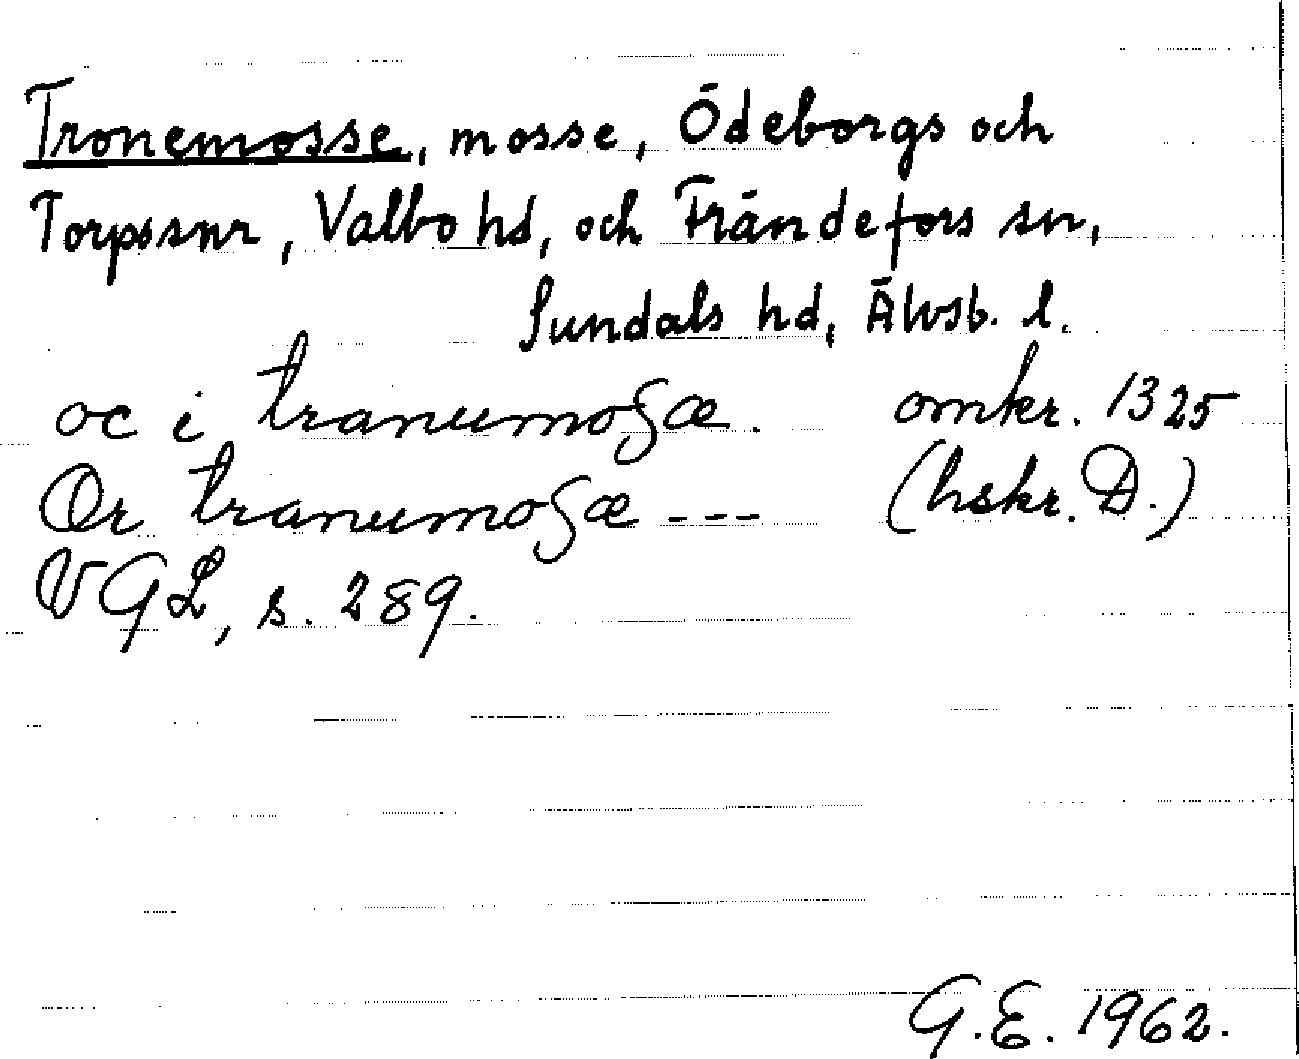 Tronemosse, mosse, Ödeborgs och
Torpssnr, Valbo hd, och Frändefors sn,
Sundals hd, Älvsb. l.
oc i tranumoßæ. omkr. 1325
Or tranumoßæ --- (hskr. D.)
VGL, s. 289.
G.E. 1962.